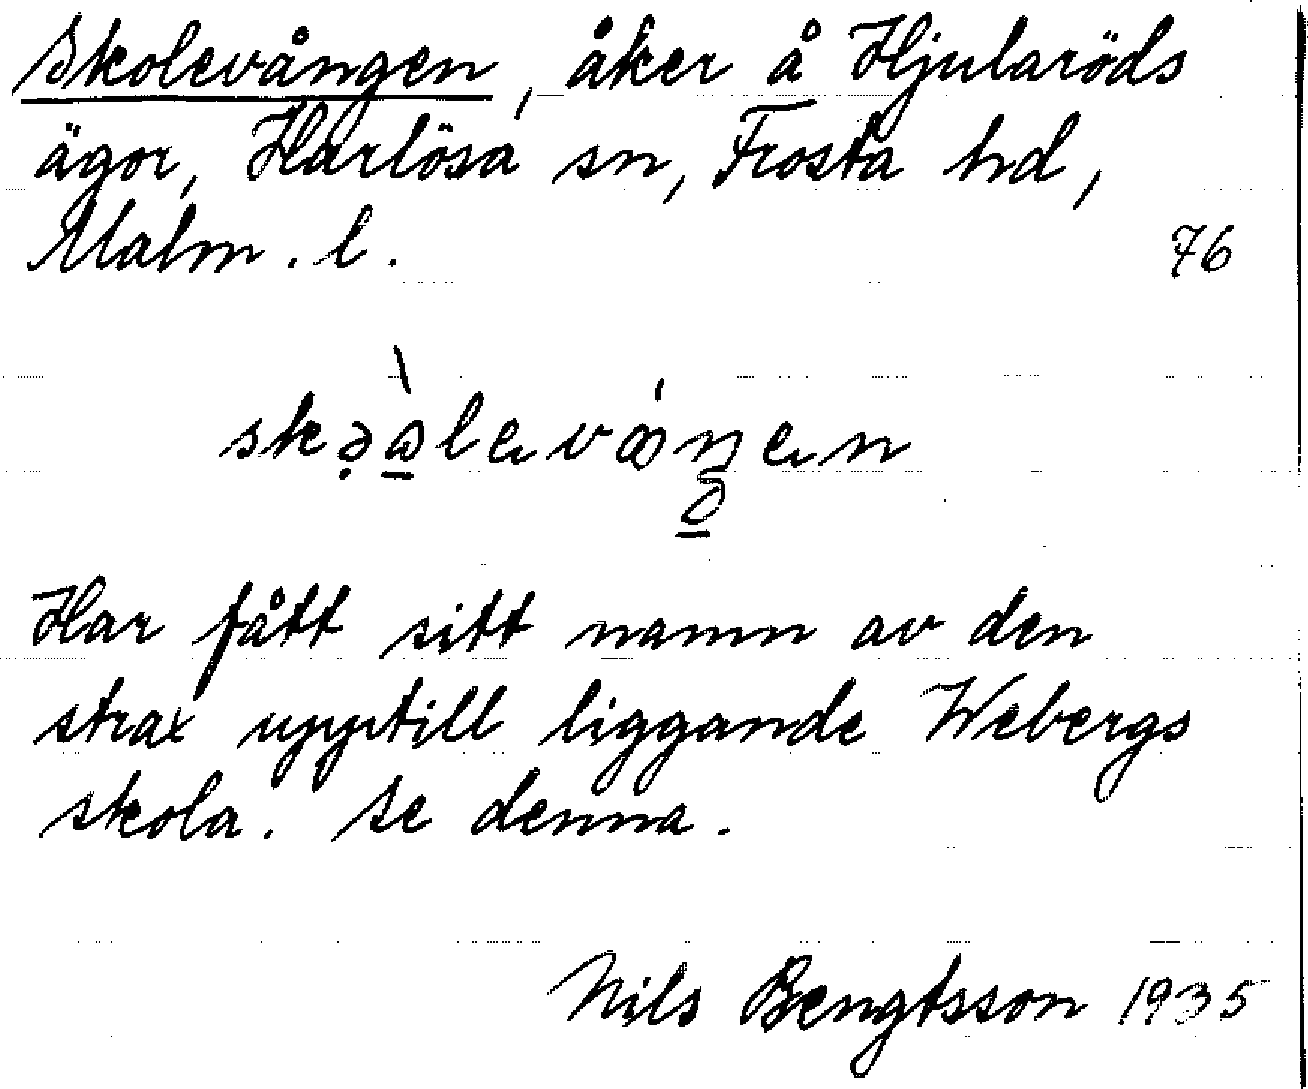 Skolevången, åker å Hjularöds
ägor, Harlösa sn, Frosta hd,
Malm. l.
76
Har fått sitt namn av den
strax upptill liggande Webergs
skola. Se denna.
Nils Bengtsson 1935